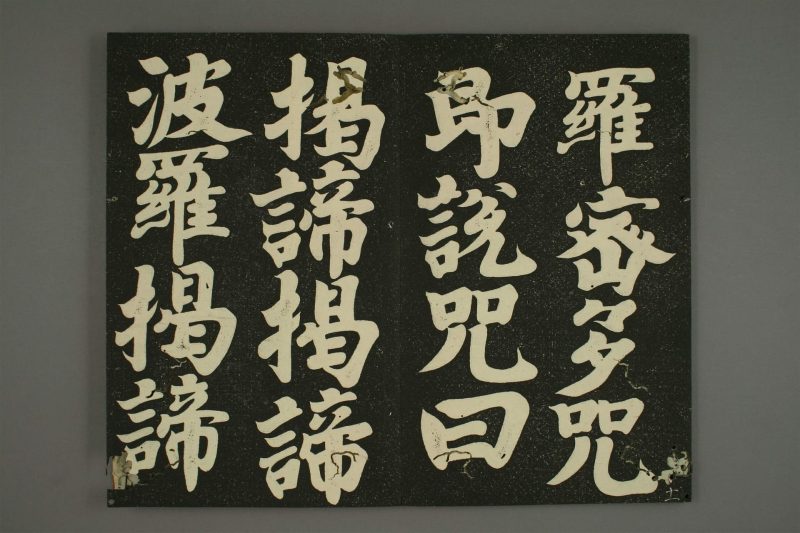 羅密多咒
即說咒曰
揭諦揭諦
波羅揭諦